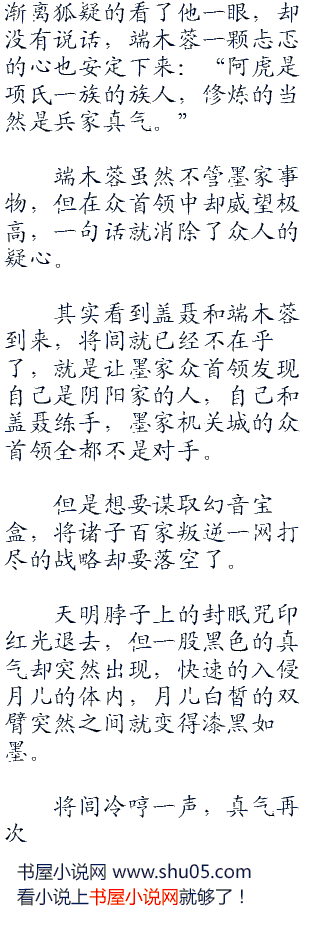 渐离狐疑的看了他一眼，却
没有说话，端木蓉一颗忐忑
的心也安定下来：“阿虎是
项氏一族的族人，修炼的当
然是兵家真气。”
端木蓉虽然不管墨家事
物，但在众首领中却威望极
高，一句话就消除了众人的
疑心。
其实看到盖聂和端木蓉
到来，将闾就已经不在乎
了，就是让墨家众首领发现
自己是阴阳家的人，自己和
盖聂练手，墨家机关城的众
首领全都不是对手。
但是想要谋取幻音宝
盒，将诸子百家叛逆一网打
尽的战略却要落空了。
天明脖子上的封眠咒印
红光退去，但一股黑色的真
气却突然出现，快速的入侵
月儿的体内，月儿白皙的双
臂突然之间就变得漆黑如
墨。
将闾冷哼一声，真气再
次
书屋小说网 www.shu05.com
看小说上书屋小说网就够了！